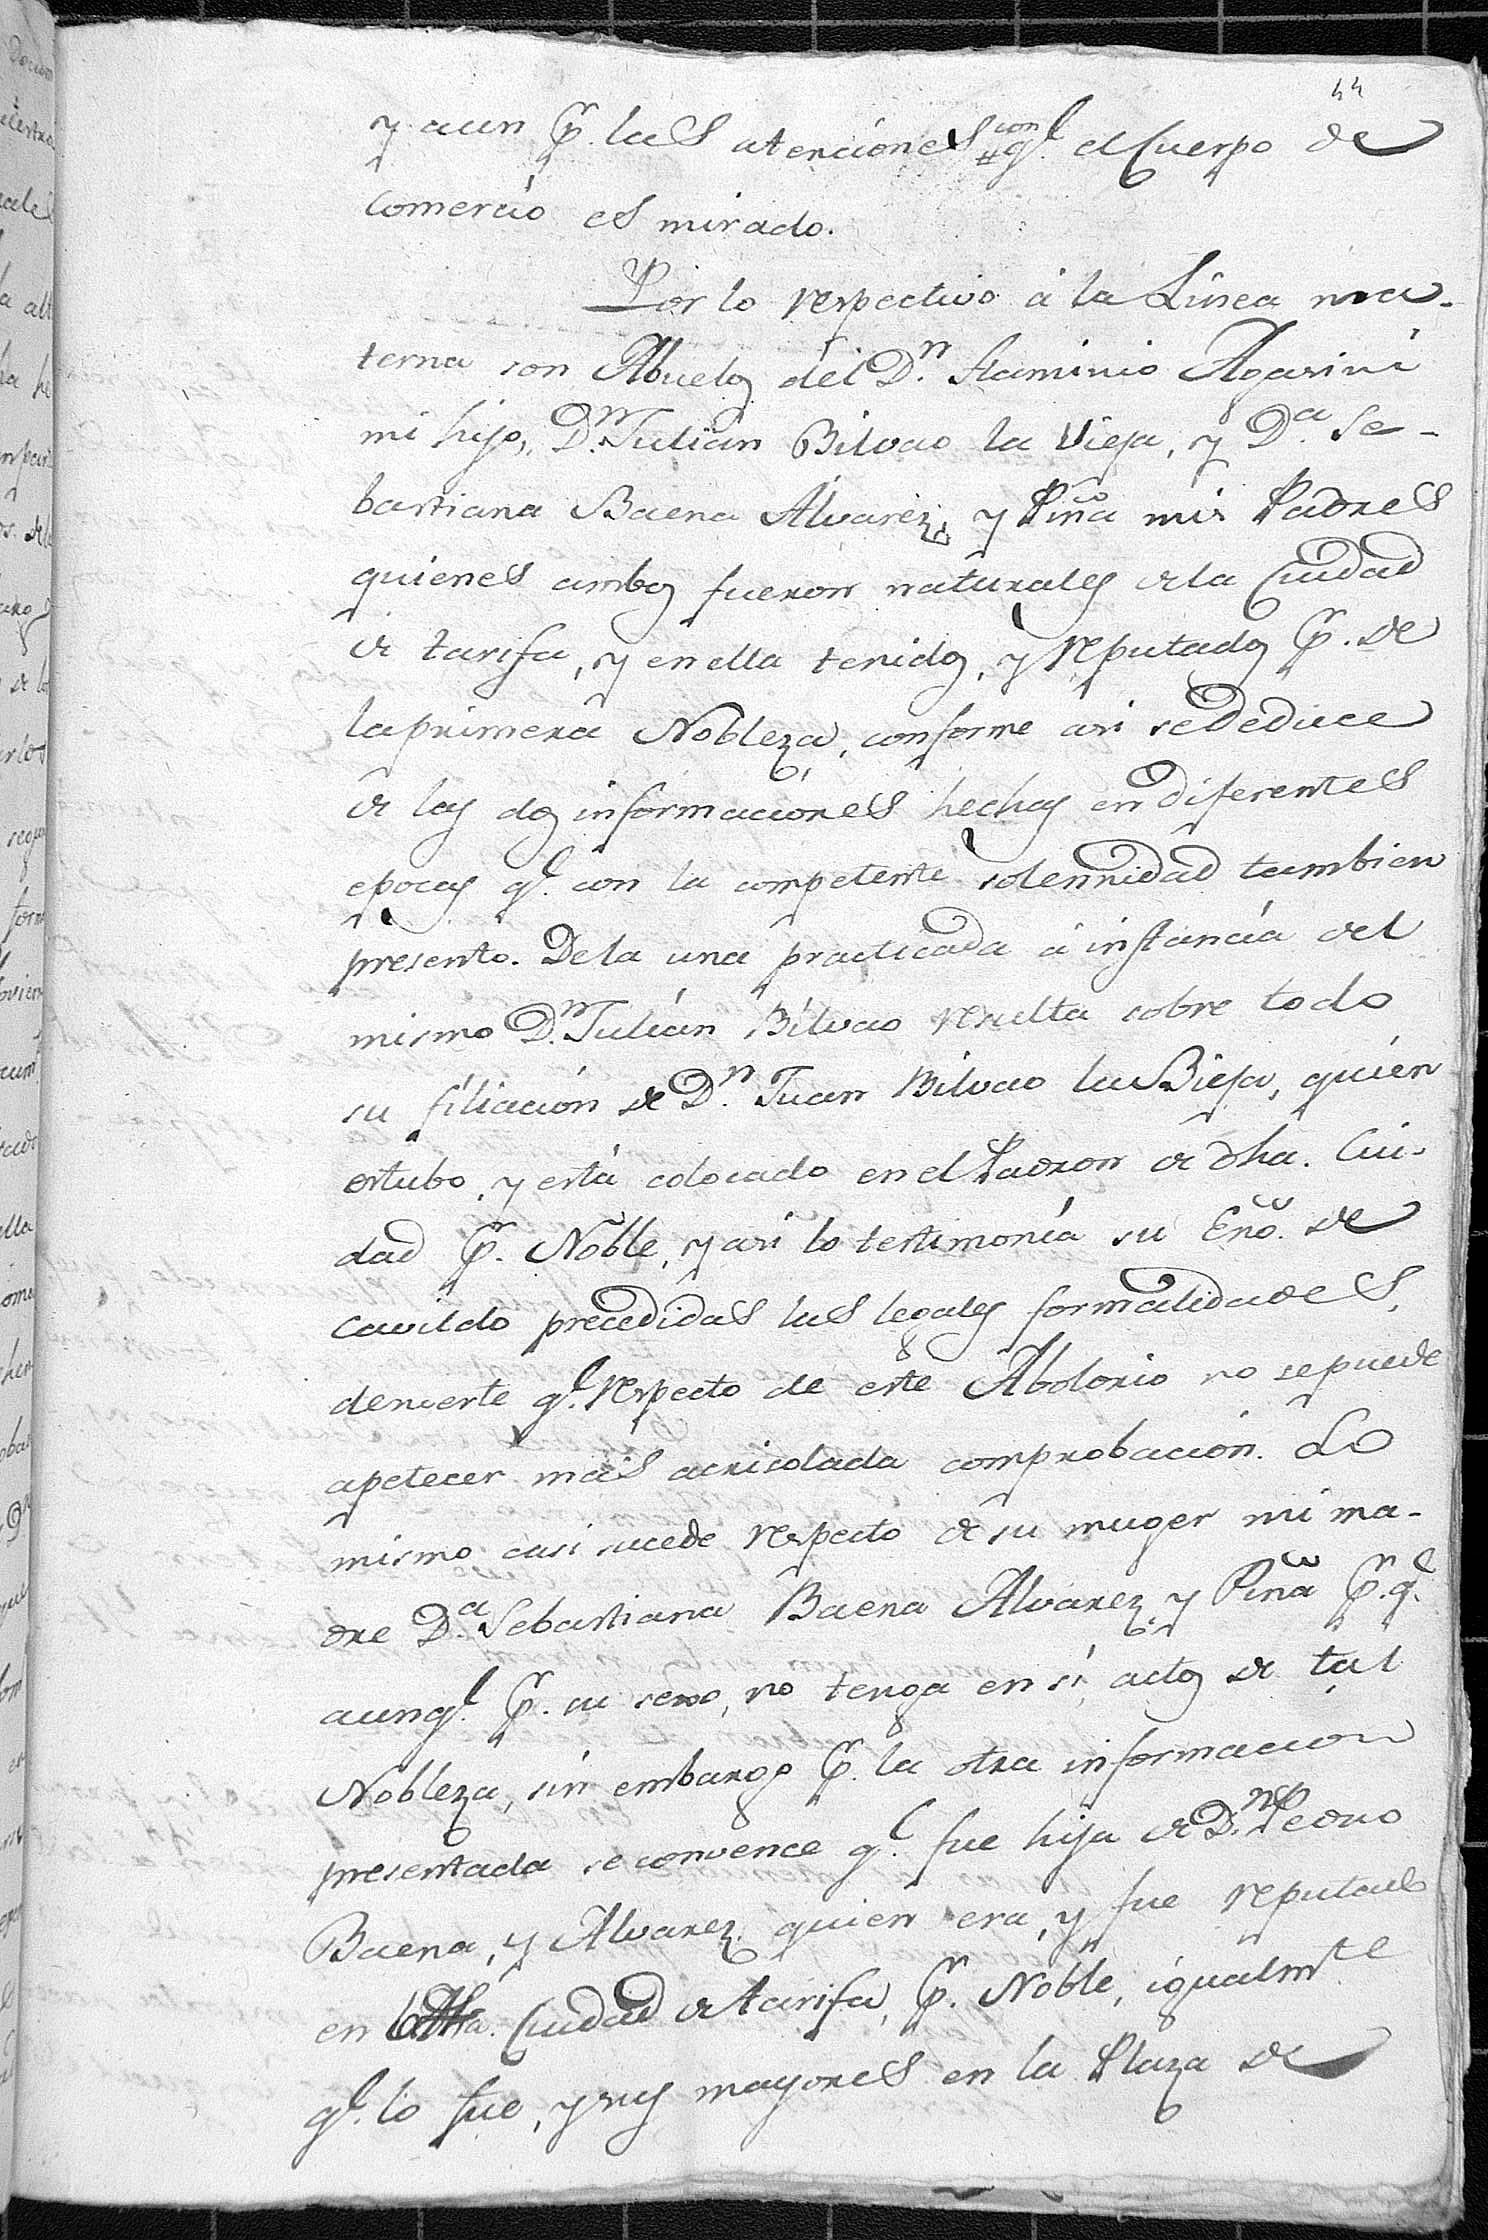 44
y aun pr. las atenciones con ql. el Cuerpo de
comercio es mirado.
Por lo respectivo á la Línea ma-
terna son Abuelos del Dn. Flaminio Agarini
mi hijo, Dn. Julian Bilvao la Vieja, y Da. Se-
bastiana Baena Alvarez, y Piña mis Padres
quienes ambos fueron naturales de la Ciudad
de tarifa, y en ella tenidos, y reputados pr. de
la primera Nobleza, conforme asi se Deduce
de las dos informaciones hechas en diferentes
epocas ql. con la competente solemnidad tambien
presento. De la una practicada á instancia del
mismo Dn. Julian Bilvao resulta sobre todo
su filiación de Dn. Juan Bilvao la Bieja, quién
estubo, y está colocado en el Padron de dha. Ciu-
dad pr. Noble, y asi lo testimonía su Eño. de
Cavildo precedidas las legales formalidades,
demerte ql. respecto de este Abolorio no se puede
apetecer mas acrisolada comprobación. Lo
mismo casi sucede respecto de su muger mi ma-
dre Da. Sebastiana Baena Alvarez y Piña pr. ql.
aunql. pr. su sexo, no tenga en sí actos de tal
Nobleza, sin embargo pr. la otra informacion
presentada se convence ql. fue hija de Dn. Pedro
Baena, y Alvarez quien era, y fue reputado
en dha. Ciudad de tarifa, pr. Noble, igualmte.
ql. lo fue, y sus mayores en la Plaza de